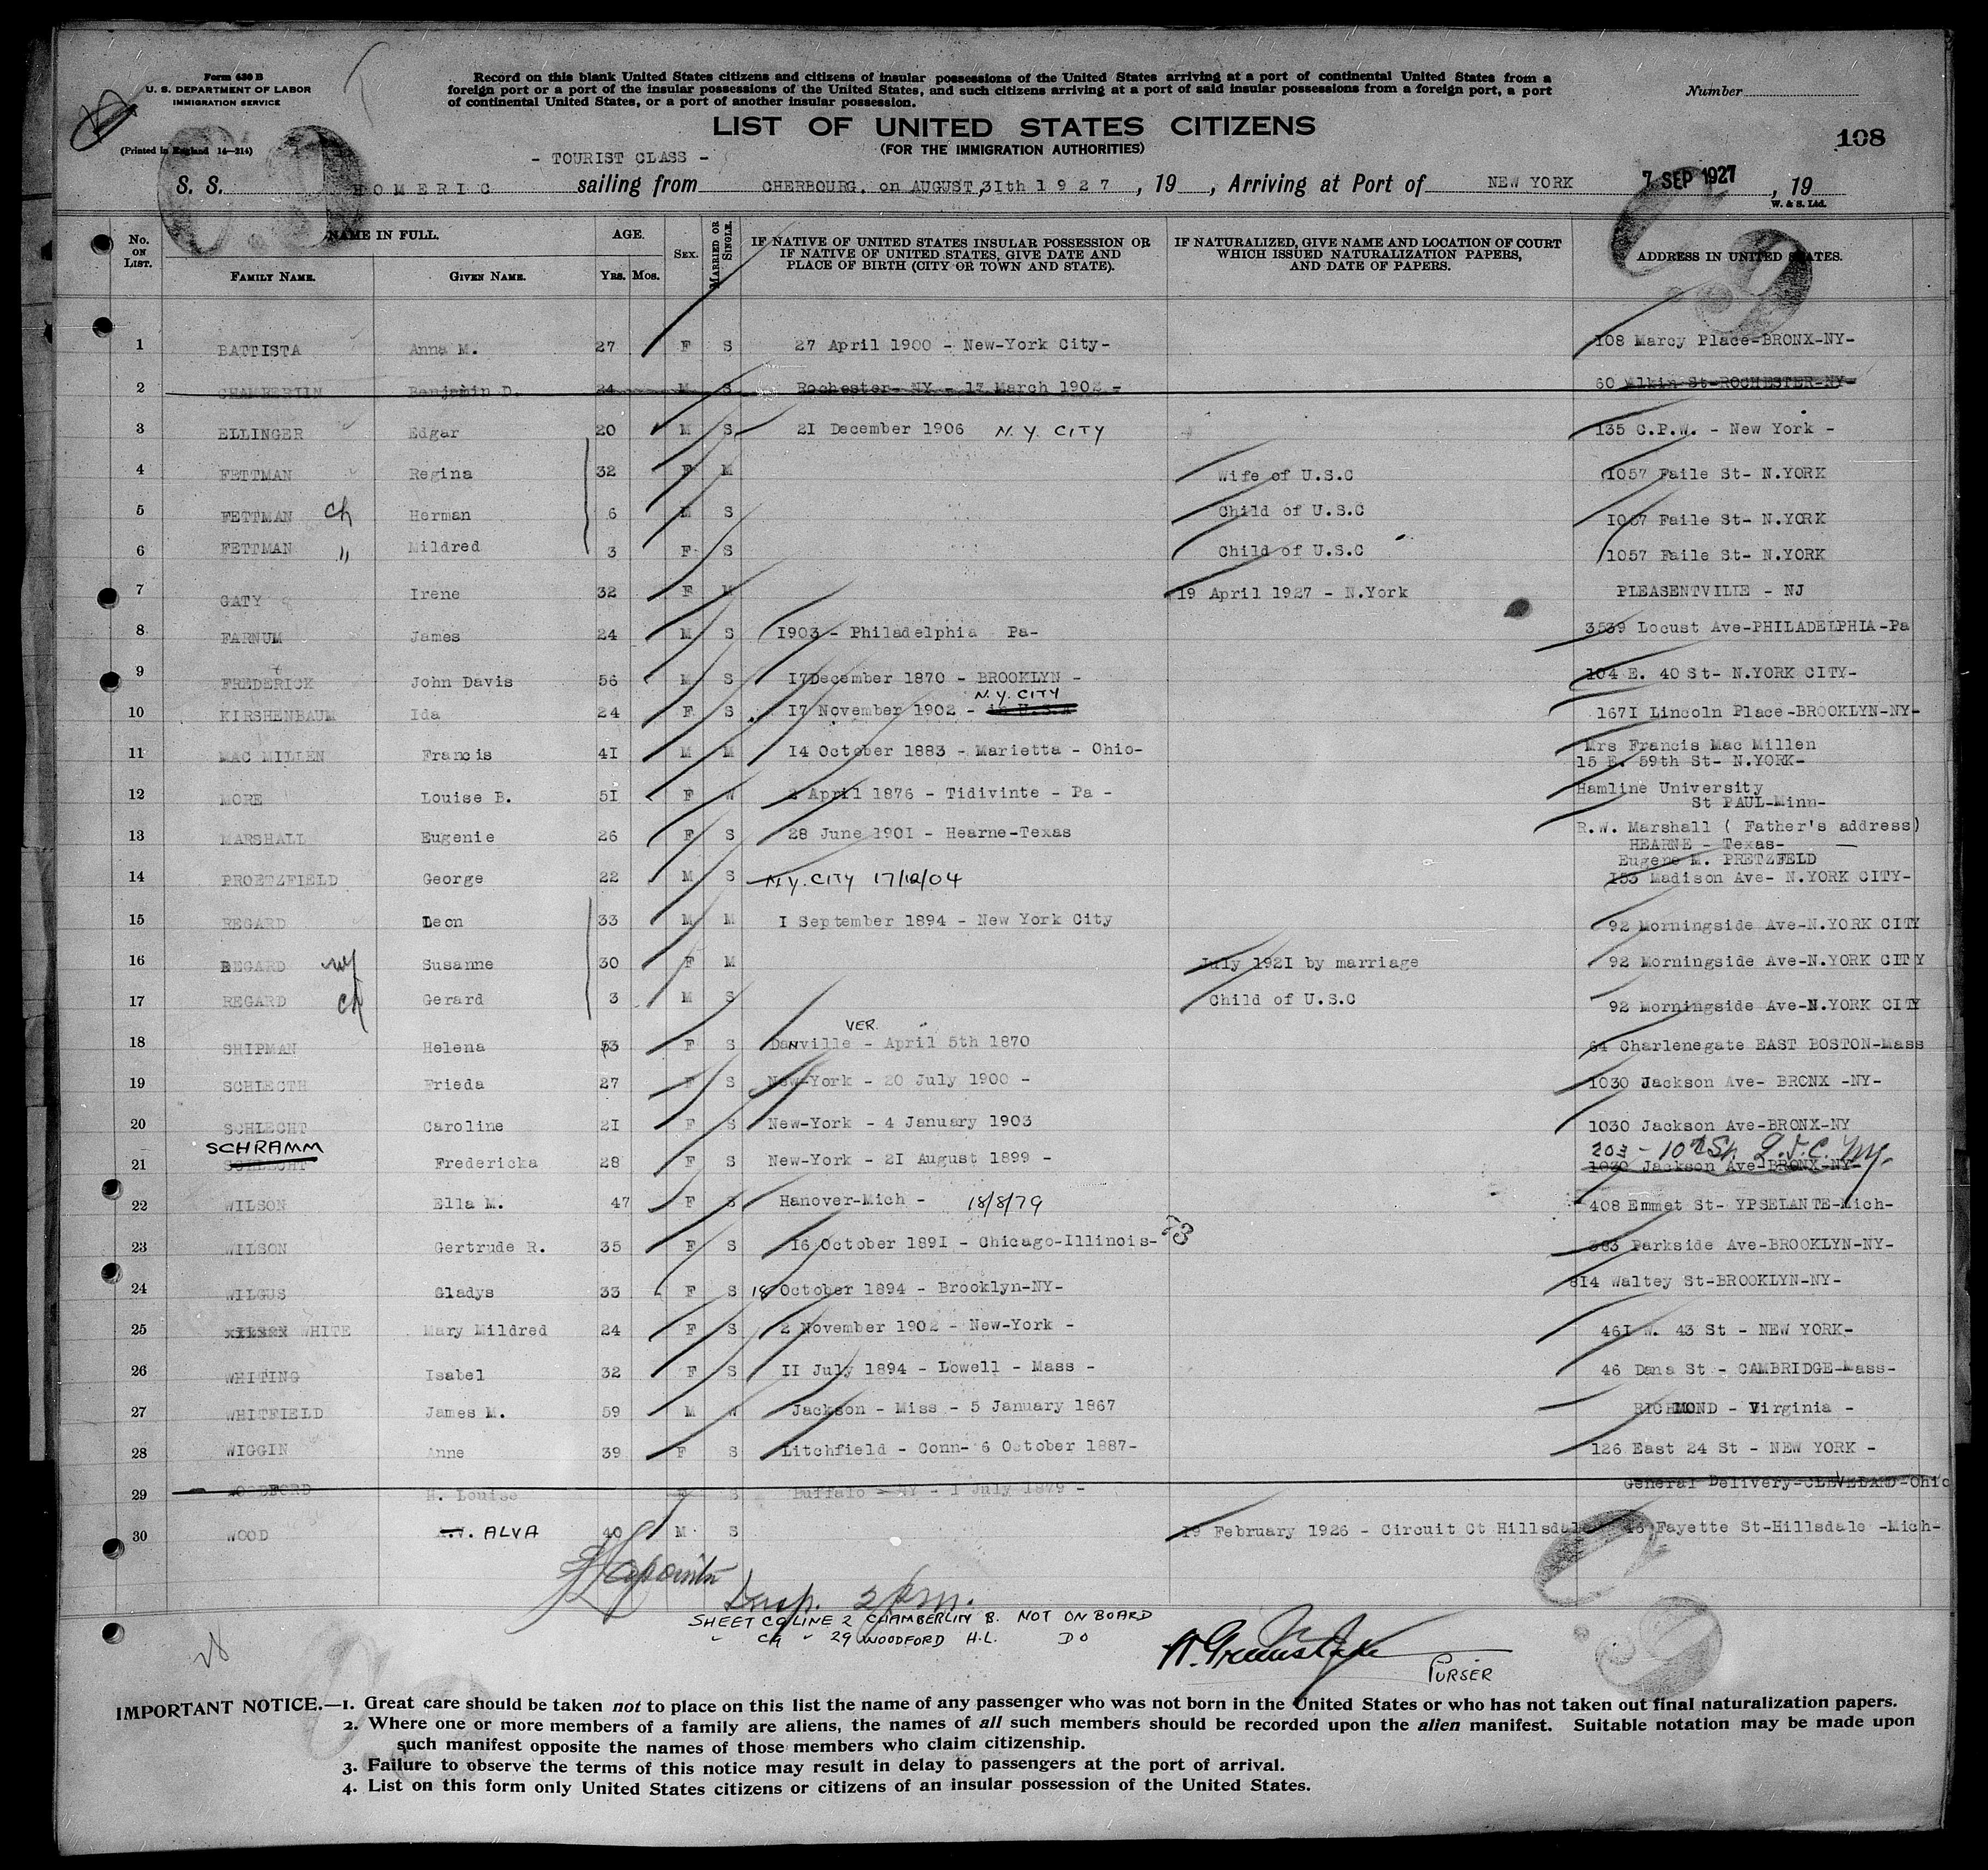 Form 630 B
U. S. DEPARTMENT OF LABOR
IMMIGRATION SERVICE
(Printed in England 14—214)
Record on this blank United States citizens and citizens of insular possessions of the United States arriving at a port of continental United States from a
foreign port or a port of the insular possessions of the United States, and such citizens arriving at a port of said insular possessions from a foreign port, a port
of continental United States, or a port of another insular possession.
Number
LIST OF UNITED STATES CITIZENS
(FOR THE IMMIGRATION AUTHORITIES)
108
- TOURIST CLASS -
S. S. HOMERIC sailing from CHERBOURG, on AUGUST, 3Ith 1927, 19 , Arriving at Port of NEW YORK 7 SEP 1927, 19
W. & S. Ltd.
No. ON LIST. NAME IN FULL. FAMILY NAME. GIVEN NAME. AGE. YRS. MOS. SEX. MARRIED OR SINGLE. IF NATIVE OF UNITED STATES INSULAR POSSESSION OR IF NATIVE OF UNITED STATES, GIVE DATE AND PLACE OF BIRTH (CITY OR TOWN AND STATE). IF NATURALIZED, GIVE NAME AND LOCATION OF COURT WHICH ISSUED NATURALIZATION PAPERS, AND DATE OF PAPERS. ADDRESS IN UNITED STATES.
1 BATTISTA Anna M. 27 F S 27 April 1900 - New-York City- 108 Marcy Place-BRONX-NY-
2 CHAMBERTIN Benjamin D. 24 M S Rochester- NY - 17 March 1902 - 60 Elkin St-ROCHESTER-NY-
3 ELLINGER Edgar 20 M S 2I December 1906 N.Y. CITY 135 C.P.W. - New York -
4 FETTMAN Regina 32 F M Wife of U.S.C 1057 Faile St- N.YORK
5 FETTMAN ch Herman 6 M S Child of U.S.C 1057 Faile St- N.YORK
6 FETTMAN " Mildred 3 F S Child of U.S.C 1057 Faile St- N.YORK
7 GATY Irene 32 F M 19 April 1927 - N.York PLEASENTVILIE - NJ
8 FARNUM James 24 M S I903 - Philadelphia Pa- 3539 Locust Ave-PHILADELPHIA-Pa
9 FREDERICK John Davis 56 M S I7December 1870 - BROOKLYN - 104 E. 40 St- N.YORK CITY-
10 KIRSHENBAUM Ida 24 F S I7 November 1902 - in U.S.A N.Y. CITY 167I Lincoln Place-BROOKLYN-NY-
11 MAC MILLEN Francis 4I M M I4 October 1883 - Marietta - Ohio- Mrs Francis Mac Millen
15 E. 59th St- N.YORK-
12 MORE Louise B. 5I F W 2 April 1876 - Tidivinte - Pa - Hamline University
St PAUL-Minn-
13 MARSHALL Eugenie 26 F S 28 June 190I - Hearne-Texas R.W. Marshall ( Father's address)
HEARNE - Texas-
14 PROETZFIELD George 22 M S N.Y. CITY 17/12/04 Eugene M. PRETZFELD
153 Madison Ave- N.YORK CITY-
15 REGARD Leon 33 M M I September 1894 - New York City 92 Morningside Ave-N.YORK CITY
16 REGARD wf Susanne 30 F M July 192I by marriage 92 Morningside Ave-N.YORK CITY
17 REGARD ch Gerard 3 M S Child of U.S.C 92 Morningside Ave-N.YORK CITY
18 SHIPMAN Helena 53 F S Danville - VER. April 5th 1870 64 Charlenegate EAST BOSTON-Mass
19 SCHLECTH Frieda 27 F S New-York - 20 July 1900 - 1030 Jackson Ave- BRONX -NY-
20 SCHLECHT Caroline 2I F S New-York - 4 January 1903 1030 Jackson Ave-BRONX-NY
SCHRAMM 203 - 10th St. L.I.C. NY.
21 SCHLECHT Fredericka 28 F S New-York - 2I August 1899 - 1030 Jackson Ave-BRONX-NY-
22 WILSON Ella M. 47 F S Hanover-Mich - 18/8/79 408 Emmet St- YPSELANTE-Mich-
23 WILSON Gertrude R. 35 F S 16 October 189I - Chicago-Illinois- 383 Parkside Ave-BROOKLYN-NY-
24 WILGUS Gladys 33 F S 18 October 1894 - Brooklyn-NY- 814 Waltey St-BROOKLYN-NY-
25 WHITE Mary Mildred 24 F S 2 November 1902 - New-York - 46I W. 43 St - NEW YORK-
26 WHITING Isabel 32 F S II July 1894 - Lowell - Mass - 46 Dana St - CAMBRIDGE-Mass-
27 WHITFIELD James M. 59 M W Jackson - Miss - 5 January 1867 RICHMOND - Virginia -
28 WIGGIN Anne 39 F S Litchfield - Conn- 6 October 1887- 126 East 24 St - NEW YORK -
29 WOODFORD H. Louise F S Buffalo - NY - I July 1879 - General Delivery-CLEVELAND-Ohio
30 WOOD ALVA 40 M S 19 February 1926 - Circuit Ct Hillsdale 43 Fayette St-Hillsdale -Mich-
Insp. 2 pm.
SHEET C9 LINE 2 CHAMBERLIN B. NOT ON BOARD
" C9 " 29 WOODFORD H.L. DO
PURSER
IMPORTANT NOTICE.—1. Great care should be taken not to place on this list the name of any passenger who was not born in the United States or who has not taken out final naturalization papers.
2. Where one or more members of a family are aliens, the names of all such members should be recorded upon the alien manifest. Suitable notation may be made upon
such manifest opposite the names of those members who claim citizenship.
3. Failure to observe the terms of this notice may result in delay to passengers at the port of arrival.
4. List on this form only United States citizens or citizens of an insular possession of the United States.